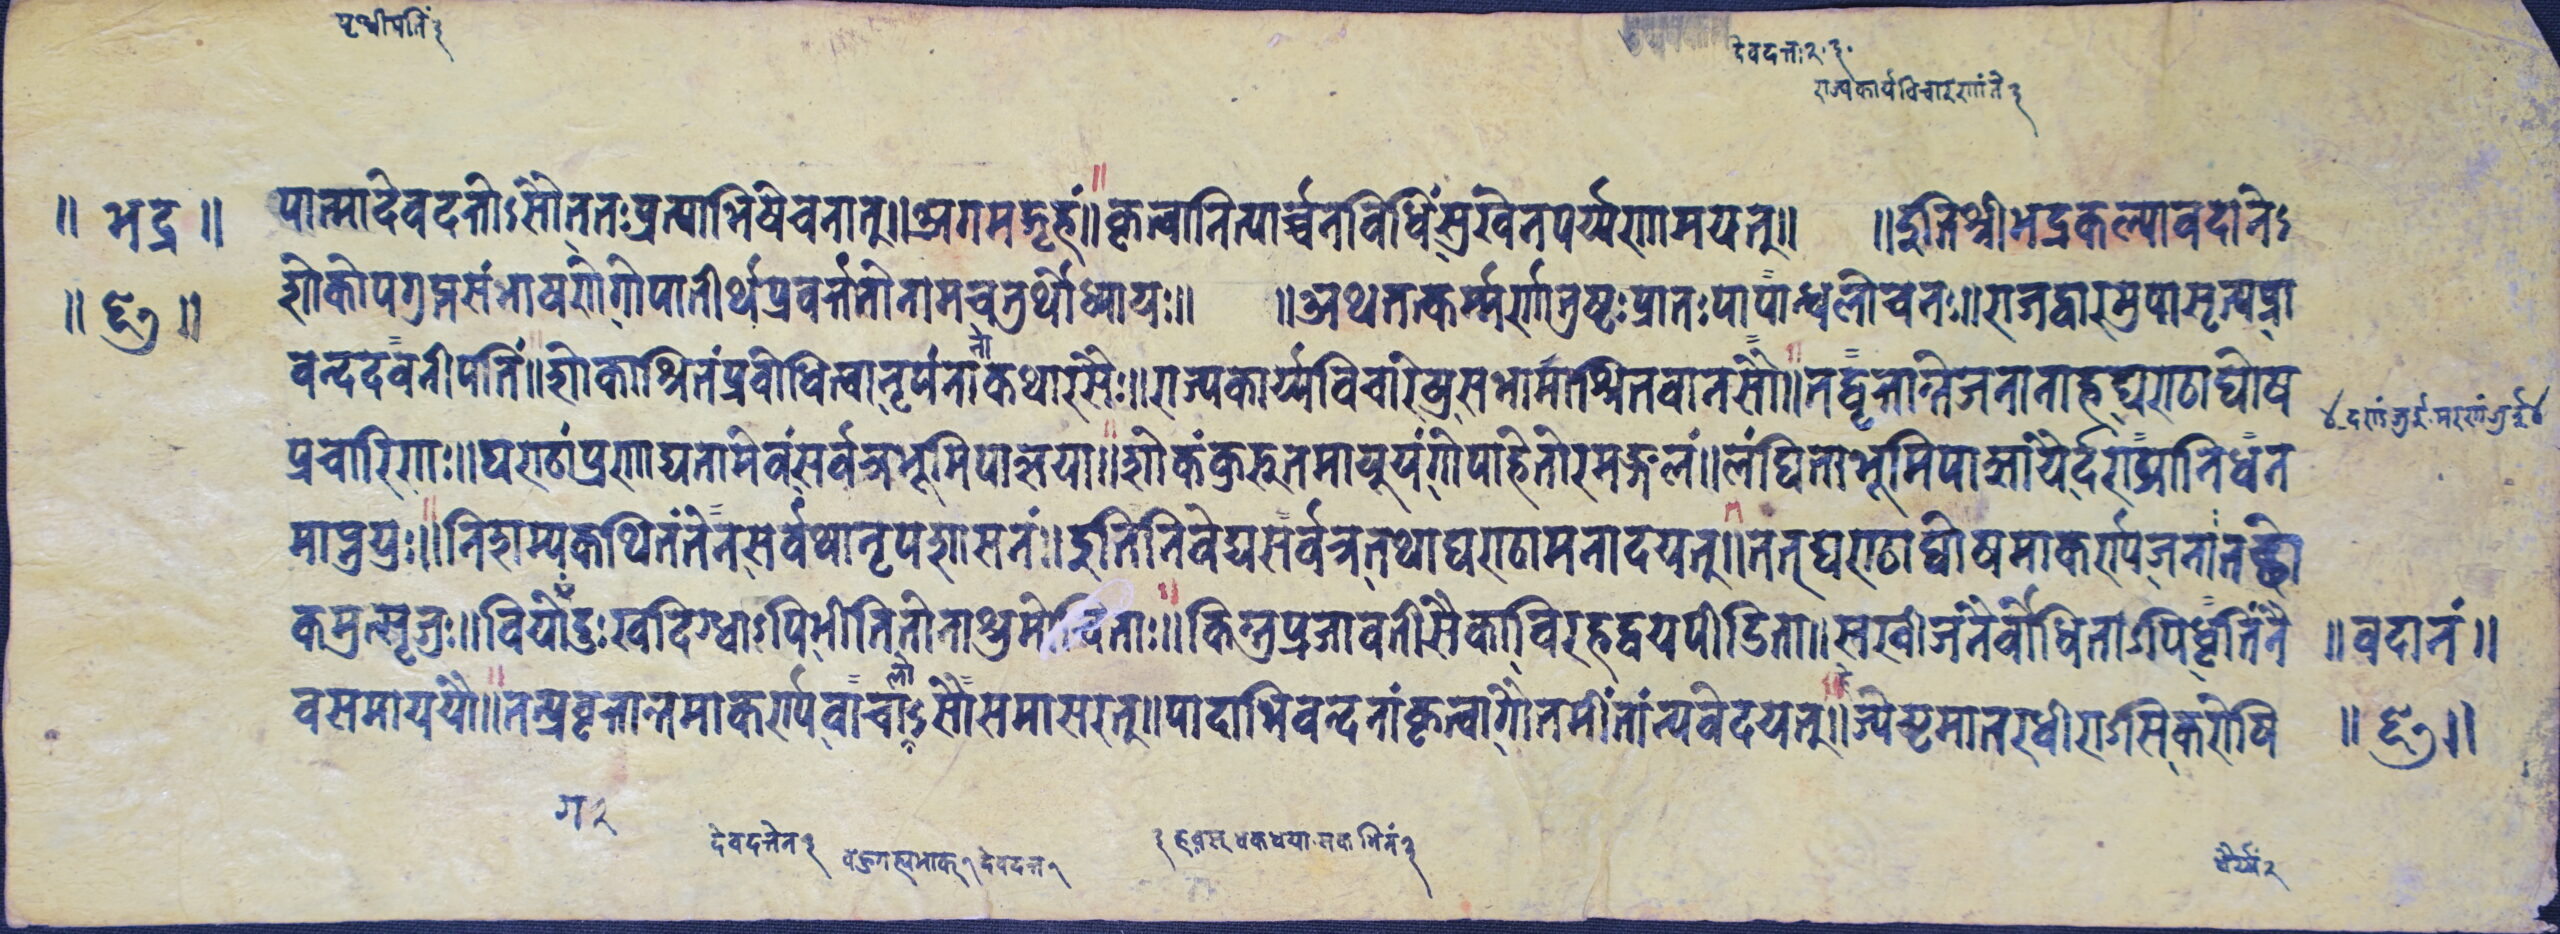 पृथ्वीपतिं ३
देवदत्तः २ ३
राज्यकार्यविचारणांते ३
॥ भद्र ॥
पात्मादेवदत्तोऽसौततःप्रत्याभिषेचनात्॥अगमद्गृहं॥कृत्वानित्यार्च्चनविधिंसुखेनपर्य्यरामयत्॥ ॥इतिश्रीभद्रकल्पावदानेऽ
शोकोपगुप्तसंभाषणेगोपातीर्थप्रवर्त्ततोनामचतुर्थोध्यायः॥ ॥अथतत्कर्म्मणातुष्टःप्रातःपापान्धलोचनः॥राजद्वारमुपासृत्यप्रा
वन्ददवनीपतिं॥शोकाश्रितंप्रबोधित्वानृपंनानाकथारसैः॥राज्यकार्य्यविचारेषुसभामाश्रितवानसौ॥तद्वृत्तान्तेजनानाहघण्ठाघोष
प्रचारिणः॥घण्ठांप्रणाद्यतामेवंसर्वत्रभूमिपाज्ञया॥शोकंकुरुतमायूयंगोपाहेतोरमङ्गलं॥लंघितोभूमिपाज्ञांयैर्दण्डाप्रानिधन
माप्नुयुः॥निशम्यकथितंतेनसर्वथानृपशासनं॥इतिनिवेद्यसर्वत्रतथाघण्ठामनादयत्॥तत्घण्ठाघोषमाकर्ण्यजनानच्छो
कमुत्सृजुः॥वियोदुःखदिग्धाऽपिभीतितोनाश्रुमोचिताः॥किन्तुप्रजावतीसैकाविरहद्वयपीडिता॥सखीजनैर्बोधिताऽपिधृतिंनै
॥ वदानं ॥
वसमाययौ॥तत्प्रवृत्तान्तमाकर्ण्यवाचालोऽसौसमासरत्॥पादाभिवन्दनांकृत्वागौतमींतांन्यवेदयत्॥ज्येष्टमातरधीराऽसिकरोषि
ग २
देवदत्तेन ३
देवदत्त १
धैर्य्यं २